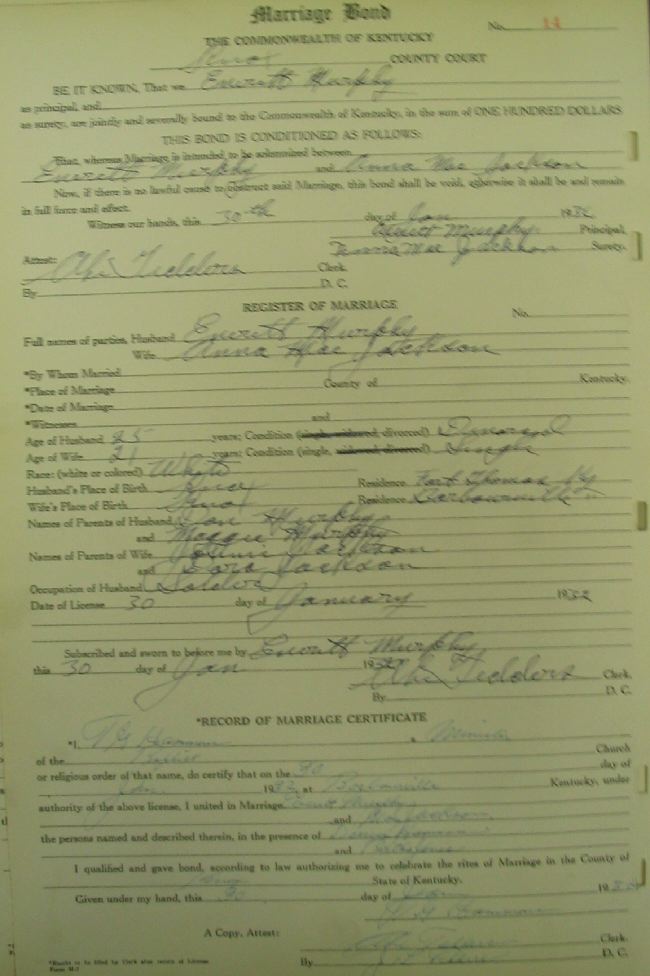 Marriage Bond
No. 14
THE COMMONWEALTH OF KENTUCKY
Knox COUNTY COURT
BE, IT KNOWN, That we Everett Murphy
as principal, and
as surety, are jointly and severally bound to the Commonwealth of Kentucky, in the sum of ONE HUNDRED DOLLARS
THIS BOND IS CONDITIONED AS FOLLOWS:
That, whereas Marriage is intended to be solemnized between
Everett Murphy and Anna Mae Jackson
Now, if there is no lawful cause to obstruct said Marriage, this bond shall be void, otherwise it shall be and remain
in full force and effect.
Witness our hands, this 30th day of Jan 1932
Everett Murphy Principal,
Mae Jackson Surety.
Attest: Tedders Clerk.
By D. C.
REGISTER OF MARRIAGE
No.
Full names of parties, Husband Everett Murphy
Wife Anna Mae Jackson
*By Whom Married
*Place of Marriage County of Kentucky.
*Date of Marriage
*Witnesses and
Age of Husband 25 years; Condition (single, widowed, divorced) Divorced
Age of Wife 21 years; Condition (single, widowed, divorced) Single
Race: (white or colored) White
Husband's Place of Birth Knox Residence Fort Thomas Ky
Wife's Place of Birth Knox Residence Barbourville "
Names of Parents of Husband Murphy
and Maggie Murphy
Names of Parents of Wife Jackson
and Jackson
Occupation of Husband Soldier
Date of License 30 day of January 1932
Subscribed and sworn to before me by Everett Murphy
this 30 day of Jan 1932 Tedders Clerk.
By D. C.
*RECORD OF MARRIAGE CERTIFICATE
*I, a Minister
of the Church
or religious order of that name, do certify that on the 30 day of
Jan 1932 at Barbourville Kentucky, under
authority of the above license, I united in Marriage Everett Murphy
and Jackson
the persons named and described therein, in the presence of
and
I qualified and gave bond, according to law authorizing me to celebrate the rites of Marriage in the County of
Knox State of Kentucky.
Given under my hand, this 30 day of Jan 1932
A Copy, Attest: Clerk.
By D. C.
*Blanks to be filled by Clerk after return of License